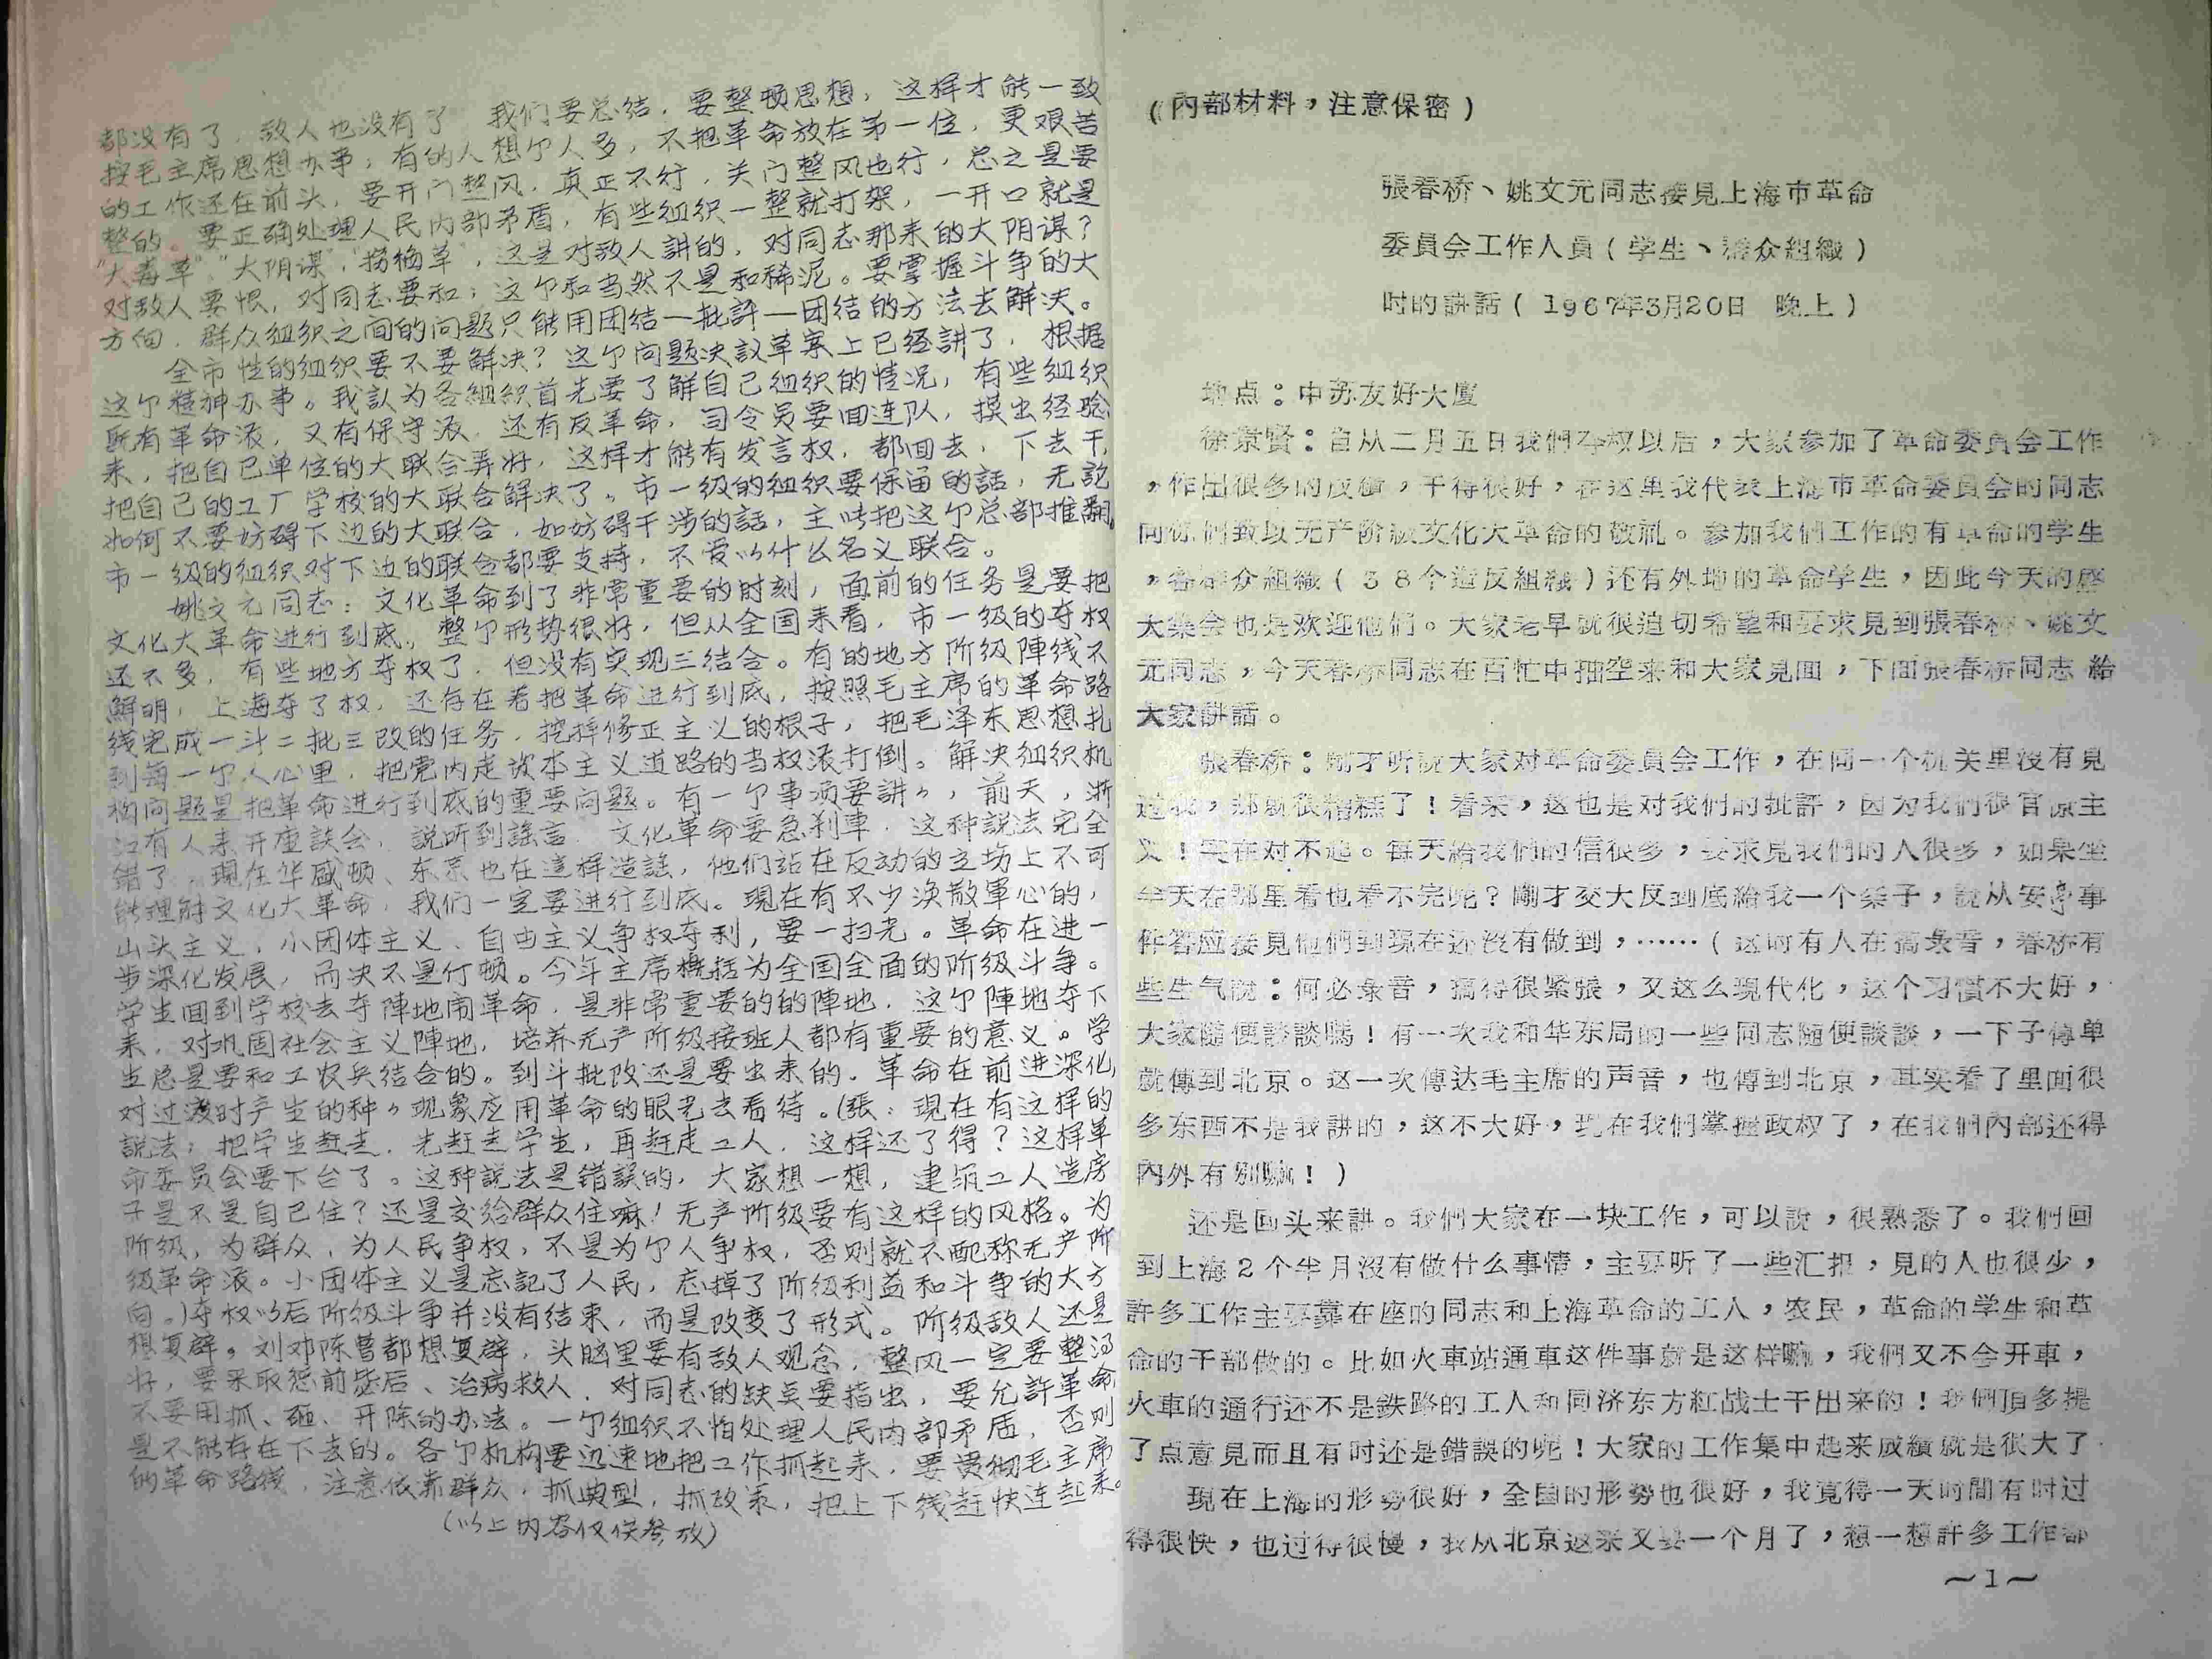 都没有了，敌人也没有了　我们要总结，要整顿思想，这样才能一致
按毛主席思想办事；有的人想个人多，不把革命放在第一位，更艰苦
的工作还在前头，要开门整风，真正不行，关门整风也行，总之是要
整的。要正确处理人民内部矛盾，有些组织一整就打架，一开口就是
“大毒草”“大阴谋”，这是对敌人讲的，对同志那来的大阴谋？
对敌人要恨，对同志要和；这个和当然不是和稀泥。要掌握斗争的大
方向，群众组织之间的问题只能用团结—批評—团结的方法去解决。
全市性的组织要不要解决？这个问题决議草案上已经講了，根据
这个精神办事。我認为各組织首先要了解自己组织的情况，有些组织
既有革命派，又有保守派，还有反革命，司令员要回连队，摸出经驗
来，把自己单位的大联合弄好，这样才能有发言权，都回去，下去干，
把自己的工厂学校的大联合解决了。市一级的组织要保留的話，无論
如何不要妨碍下边的大联合，如妨碍干涉的話，主張把这个总部推翻，
市一级的组织对下边的联合都要支持，不受以什么名义联合。
姚文元同志：文化革命到了非常重要的时刻，面前的任务是要把
文化大革命进行到底，整个形势很好，但从全国来看，市一级的夺权
还不多，有些地方夺权了，但没有实现三结合。有的地方阶级陣线不
鮮明，上海夺了权，还存在着把革命进行到底，按照毛主席的革命路
线完成一斗二批三改的任务，挖掉修正主义的根子，把毛泽东思想扎
到每一个人心里，把党内走资本主义道路的当权派打倒。解决组织机
构问题是把革命进行到底的重要问题。有一个事须要讲々，前天，浙
江有人来开座談会，説听到謠言，文化革命要急刹車，这种説法完全
错了，現在华盛顿、东京也在這样造謠，他们站在反动的立场上不可
能理解文化大革命，我们一定要进行到底。現在有不少渙散軍心的，
山头主义、小团体主义、自由主义争权夺利，要一扫光。革命在进一
步深化发展，而决不是停顿。今年主席概括为全国全面的阶级斗争。
学生回到学校去夺陣地闹革命，是非常重要的的陣地，这个陣地夺下
来，对巩固社会主义陣地，培养无产阶级接班人都有重要的意义。学
生总是要和工农兵结合的。到斗批改还是要出来的，革命在前进深化，
对过渡时产生的种々现象应用革命的眼光去看待。（張：現在有这样的
説法；把学生赶走，先赶走学生，再赶走工人，这样还了得？这样革
命委员会要下台了。这种説法是错誤的，大家想一想，建筑工人造房
子是不是自己住？还是交给群众住嘛！无产阶级要有这样的风格。为
阶级，为群众，为人民争权，不是为个人争权，否则就不配称无产阶
级革命派。小团体主义是忘記了人民，忘掉了阶级利益和斗争的大方
向。）夺权以后阶级斗争并没有结束，而是改变了形式。阶级敌人还是
想复辟。刘邓陈曹都想复辟，头脑里要有敌人观念，整风一定要整得
好，要采取惩前毖后、治病救人，对同志的缺点要指出，要允許革命，
不要用抓、砸、开除的办法。一个组织不怕处理人民内部矛盾，否则
是不能存在下去的。各个机构要迅速地把工作抓起来，要贯彻毛主席
的革命路线，注意依靠群众，抓典型，抓政策，把上下线赶快连起来。
（以上内容仅供参放）
（內部材料，注意保密）
張春桥、姚文元同志接見上海市革命
委員会工作人員（学生、羣众組織）
时的講話（1967年3月20日　晚上）
地点：中苏友好大厦
徐景賢：自从二月五日我們夺权以后，大家参加了革命委員会工作
，作出很多的成績，干得很好，在这里我代表上海市革命委員会的同志
向你們致以无产阶級文化大革命的敬礼。参加我們工作的有革命的学生
，各群众組織（38个造反組織）还有外地的革命学生，因此今天的盛
大集会也是欢迎他們。大家老早就很迫切希望和要求見到張春桥、姚文
元同志，今天春桥同志在百忙中抽空来和大家見面，下面張春桥同志給
大家講話。
張春桥：刚才听說大家对革命委員会工作，在同一个机关里沒有見
过我，那就很糟糕了！看来，这也是对我們的批評，因为我們很官僚主
义！实在对不起。每天給我們的信很多，要求見我們的人很多，如果坐
半天在那里看也看不完呢？剛才交大反到底給我一个条子，說从安亭事
件答应接見他們到現在还沒有做到，……（这时有人在搞录音，春桥有
些生气說：何必录音，搞得很紧張，又这么現代化，这个习慣不大好，
大家随便談談嗎！有一次我和华东局的一些同志随便談談，一下子傳单
就傳到北京。这一次傳达毛主席的声音，也傳到北京，其实看了里面很
多东西不是我講的，这不大好，現在我們掌握政权了，在我們內部还得
內外有别嘛！）
还是回头来講。我們大家在一块工作，可以說，很熟悉了。我們回
到上海2个半月沒有做什么事情，主要听了一些汇报，見的人也很少，
許多工作主要靠在座的同志和上海革命的工人，农民，革命的学生和革
命的干部做的。比如火車站通車这件事就是这样嘛，我們又不会开車，
火車的通行还不是鉄路的工人和同济东方紅战士干出来的！我們頂多提
了点意見而且有时还是錯誤的呢！大家的工作集中起来成績就是很大了
現在上海的形势很好，全国的形势也很好，我覚得一天时間有时过
得很快，也过得很慢，我从北京返来又是一个月了，想一想許多工作都
～1～